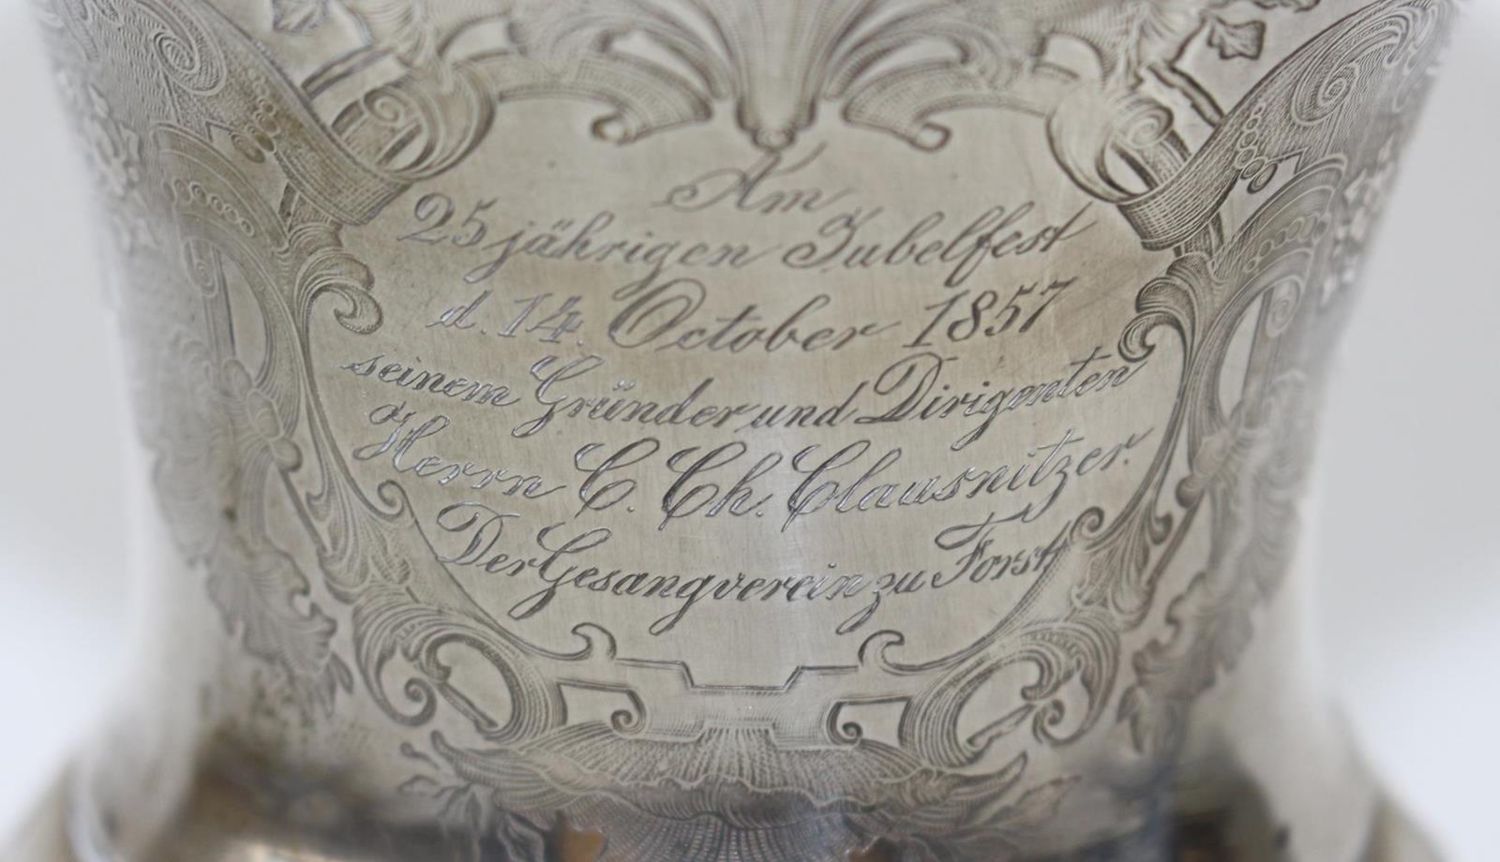 Am
25 jährigen Jubelfest
d. 14. October 1857
seinem Gründer und Dirigenten
Herrn C. Ch. Clausnitzer.
Der Gesangverein zu Forst